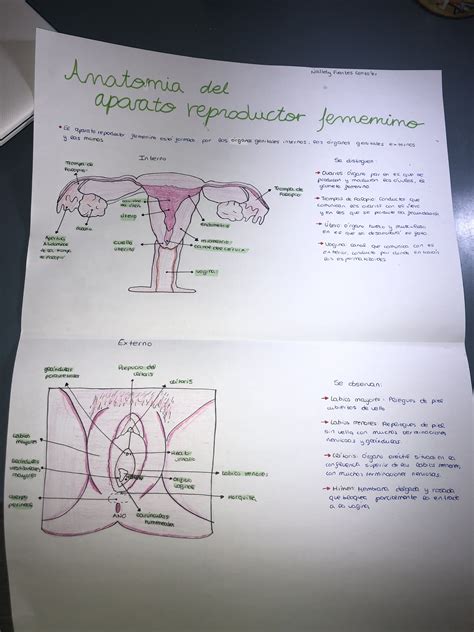 Anatomia del
aparato reproductor femenimo
• El aparato reproductor femenino está formado por los órganos genitales internos, los órganos genitales externos
y las mamas
Interno
Trompa de
Falopio
Trompa de
Falopio
Ovario
Útero
endometrio
miometrio
Cuello
uterino
Vagina
Se distinguen:
→ Ovarios: Órgano par en el que se
producen y maduran los óvulos, el
gameto femenino.
→ Trompas de Falopio: Conductor que
comunican los ovarios con el útero
y en las que se produce la fecundación
→ Útero: Órgano hueco y musculoso
en el que se desarrolla el feto.
→ Vagina: Canal que comunica con el
exterior, conducto por donde entrarán
los espermatozoides.
Externo
Prepucio del
clítoris
clítoris
glándulas
Labios
mayores
Meato
urinario
Labios menores
Glándulas
Orificio
vaginal
Horquilla
Cuerpo
perineal
ANO
Carúnculas
himeneales
Se observan:
→ Labios mayores: Pliegues de piel
cubiertos de vello
→ Labios menores: Repliegues de piel
sin vello con muchas terminaciones
nerviosas y glándulas.
→ Clítoris: Órgano eréctil situado en la
confluencia superior de los labios menores,
con muchas terminaciones nerviosas.
→ Himen: Membrana delgada y rosada
que bloquea parcialmente la entrada
a la vagina.